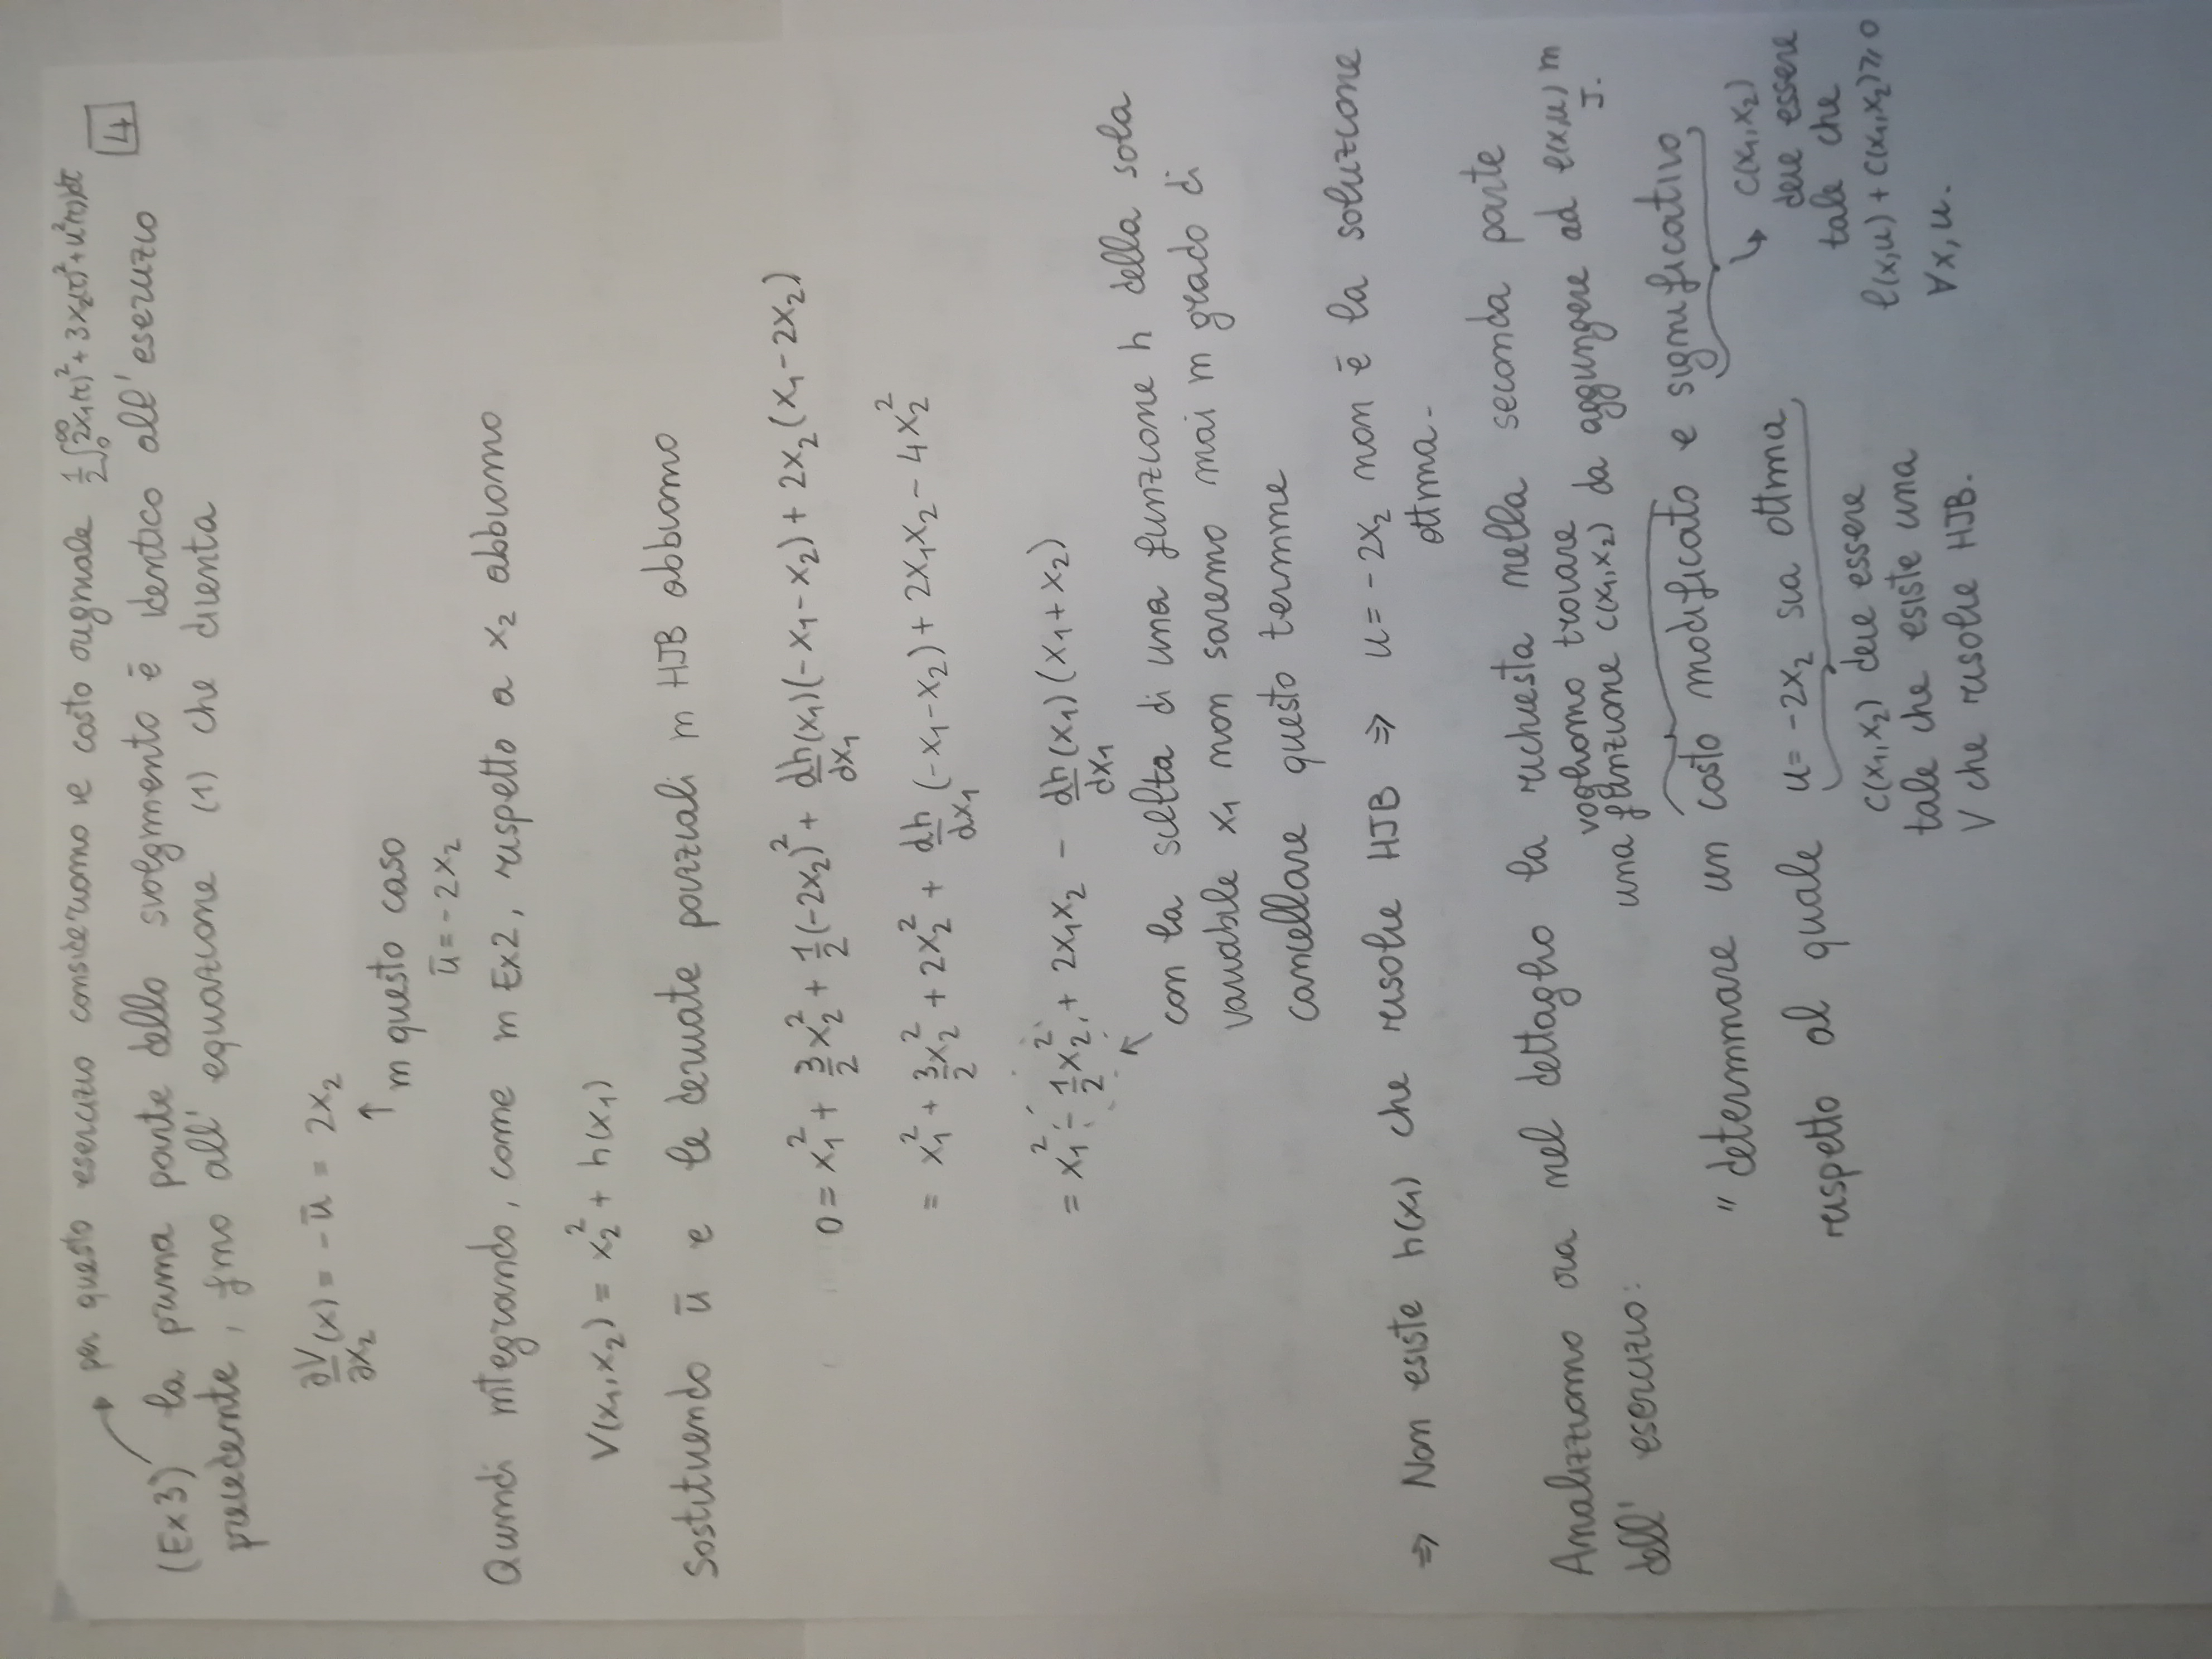 per questo esercizio consideriamo il costo originale 1/2 ∫₀^∞ 2x₁(τ)² + 3x₂(τ)² + u²(τ) dτ
4
(Ex3) la prima parte dello svolgimento ē identico all'esercizio
precedente, fino all' equazione (1) che diventa
∂V/∂x₂ (x) = - ū = 2x₂
↑ in questo caso
ū = - 2x₂
Quindi integrando, come in Ex2, rispetto a x₂ abbiamo
V(x₁,x₂) = x₂² + h(x₁)
Sostituendo ū e le derivate parziali in HJB abbiamo
0 = x₁² + 3/2 x₂² + 1/2 (-2x₂)² + dh/dx₁ (x₁)(-x₁-x₂) + 2x₂(x₁-2x₂)
= x₁² + 3/2 x₂² + 2x₂² + dh/dx₁ (-x₁-x₂) + 2x₁x₂ - 4x₂²
= x₁² - 1/2 x₂² + 2x₁x₂ - dh/dx₁ (x₁)(x₁+x₂)
↖ con la scelta di una funzione h della sola
variabile x₁ non saremo mai in grado di
cancellare questo termine
⇒ Non esiste h(x₁) che risolve HJB ⇒ u = - 2x₂ non ē la soluzione
ottima.
Analizziamo ora nel dettaglio la richiesta nella seconda parte
dell' esercizio:
vogliamo trovare
una funzione c(x₁,x₂) da aggiungere ad ℓ(x,u) in
J.
" determinare un costo modificato e significativo
rispetto al quale u = -2x₂ sia ottima
↳ c(x₁,x₂)
deve essere
tale che
ℓ(x,u) + c(x₁,x₂) ≥ 0
∀x,u.
c(x₁,x₂) deve essere
tale che esiste una
V che risolve HJB.